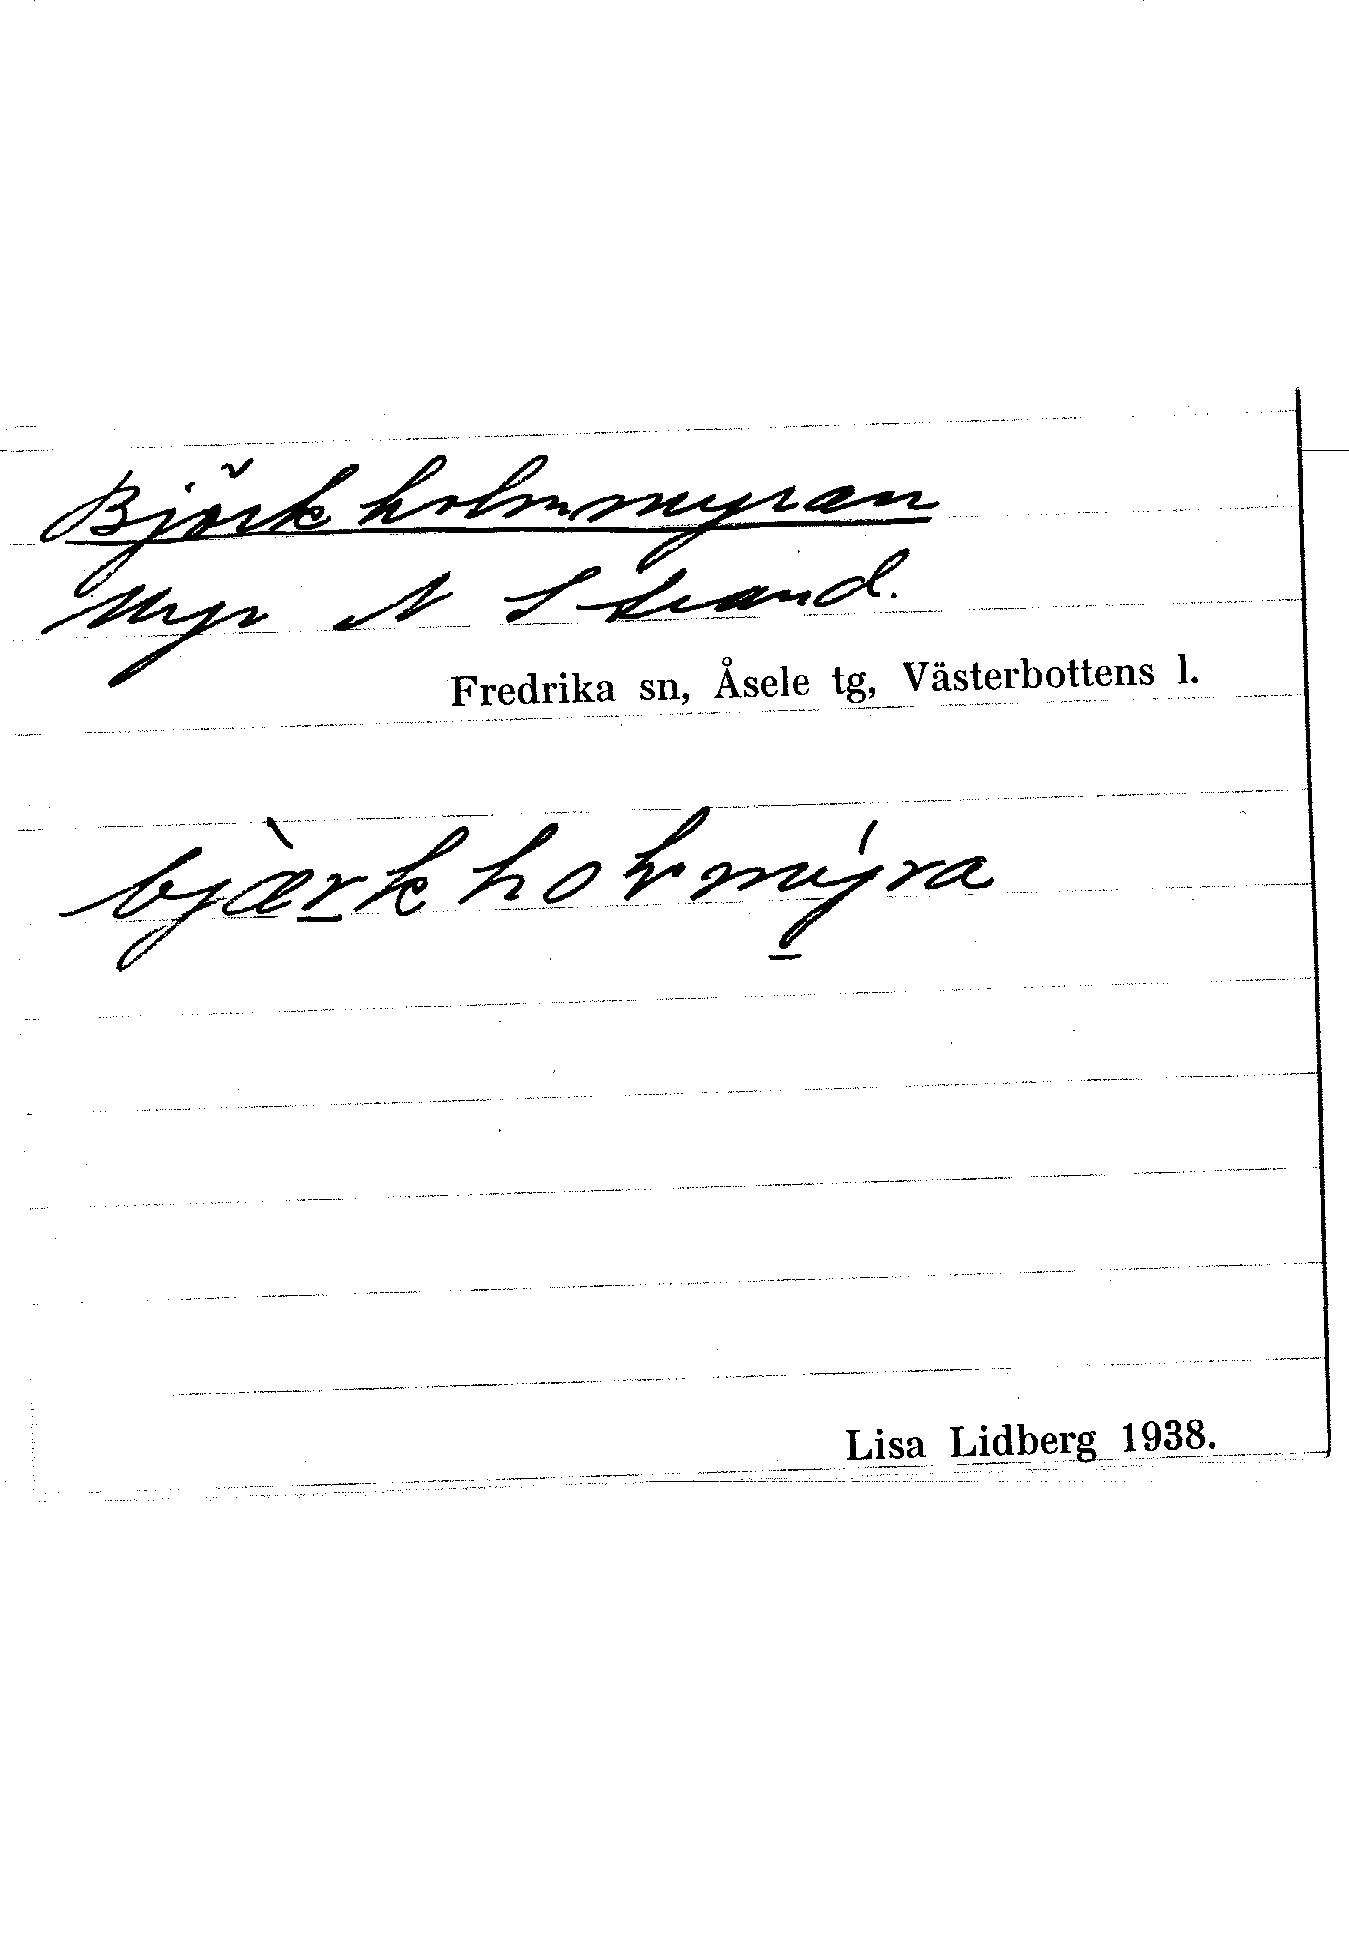 Björkholmmyran
Myr N Strand.
Fredrika sn, Åsele tg, Västerbottens l.
bjæ̀rkholmýra
Lisa Lidberg 1938.